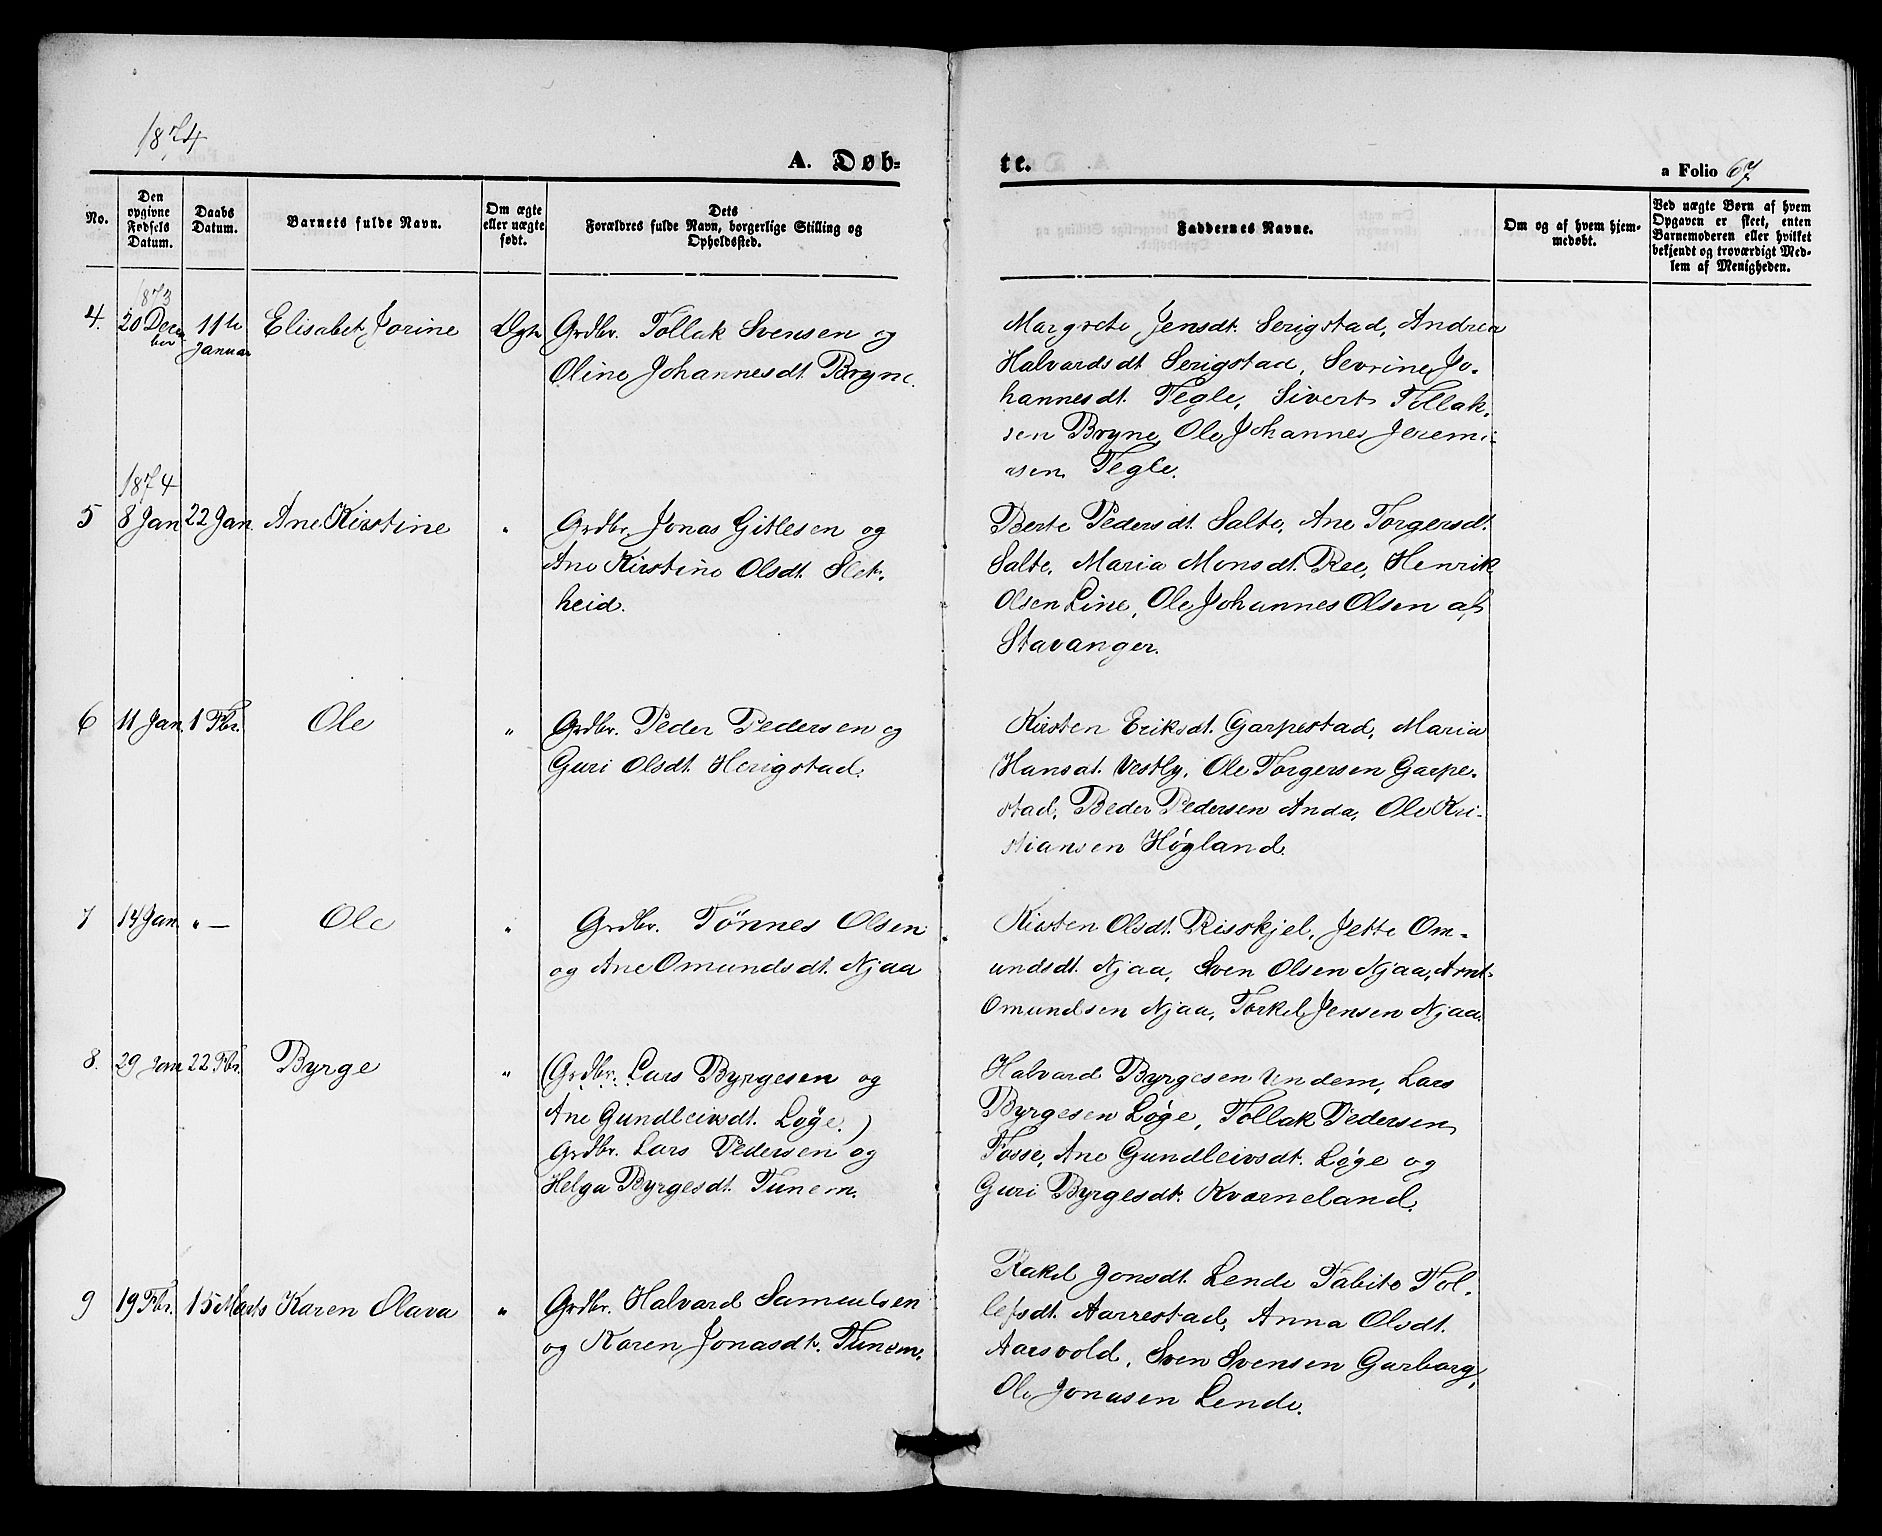 1874
A. Døb-
te.
a Folio 67
No.
Den
opgivne
Fødsels
Datum.
Daabs
Datum.
Barnets fulde Navn.
Om ægte
eller uægte
født.
Dets
Forældres fulde Navn, borgerlige Stilling og
Opholdssted.
Faddernes Navne.
Om og af hvem hjem-
medøbt.
Ved uægte Børn af hvem
Opgaven er skeet, enten
Barnemoderen eller hvilket
bekjendt og troværdigt Med-
lem af Menigheden.
1873
4. 20 Decem
ber
11te
Januar
Elisabet Jorine
Ægte
Grdbr. Tollak Svensen og
Oline Johannesdt. Bryne.
Margrete Jensdt. Serigstad, Andrea
Halvardsdt Serigstad, Sevrine Jo-
hannesdt. Tegle, Sivert Tollak-
sen Bryne, Ole Johannes Jeremi-
asen Tegle.
1874
5 8 Jan 22 Jan. Ane Kirstine "
Grdbr. Jonas Gitlesen og
Ane Kirstine Olsdt. Slet-
heid.
Berte Pedersdt. Salte, Ane Torgersdt.
Salte, Maria Monsdt. Ree, Henrik
Olsen Line, Ole Johannes Olsen af
Stavanger.
6 11 Jan. 1 Fbr. Ole "
Grdbr. Peder Pedersen og
Guri Olsdt. Herigstad.
Kirsten Eriksdt. Garpestad, Maria
Hansdt. Vestly, Ole Torgersen Garpe-
stad, Peder Pedersen Anda, Ole Kri-
stiansen Høgland.
7 14 Jan. " — Ole "
Grdbr. Tönnes Olsen
og Ane Omundsdt. Njaa
Kirsten Olsdt. Risskjel, Jette Om-
undsdt. Njaa, Sven Olsen Njaa, Arnt
Omundsen Njaa, Torkel Jensen Njaa.
8. 29 Jan 22 Fbr. Byrge "
(Grdbr. Lars Byrgesen og
Ane Gundleivsdt. Löge.)
Grdbr. Lars Pedersen og
Helga Byrgesdt. Tunem.
Halvard Byrgesen Undem, Lars
Byrgesen Løge, Tollak Pedersen
Fosse, Ane Gundleivsdt. Løge og
Guri Byrgesdt. Kværneland.
9 19 Fbr. 15 Marts Karen Olava "
Grdbr. Halvard Samuelsen
og Karen Jonasdt. Tunem.
Rakel Jonsdt. Lende Tabite Tol-
lefsdt. Aarrestad, Anna Olsdt.
Aarsvold, Sven Svensen Garborg,
Ole Jonasen Lende.